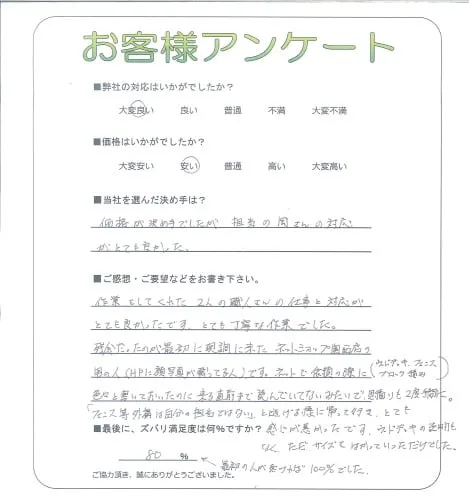 お客様アンケート
■弊社の対応はいかがでしたか?
大変良い 良い 普通 不満 大変不満
■価格はいかがでしたか?
大変安い 安い 普通 高い 大変高い
■当社を選んだ決め手は?
価格が決め手でしたが 担当の岡さんの対応
がとても良かった。
■ご感想・ご要望などをお書き下さい。
作業をしてくれた 2人の職人さんの仕事と対応が
とても良かったです。とても丁寧な作業でした。
残念だったのが最初に現調に来た ネットショップ
の人(HPに顔写真が載ってる人)です。ネットで依頼の際に(ウッドデッキ、フェンス
ブロック塀の
色々と書いておいたのに 来る直前まで読んでいないみたいで、見積りも2度手間に。
「フェンス等外構は自分の担当ではない」と逃げる様に帰って行き、とても
■最後に、ズバリ満足度は何%ですか? 感じが悪かったです。ウッドデッキの
なく、ただサイズをはかっていっただけでした。
80 % ← 最初の人が 100%でした。
ご協力頂き、誠にありがとうございました。